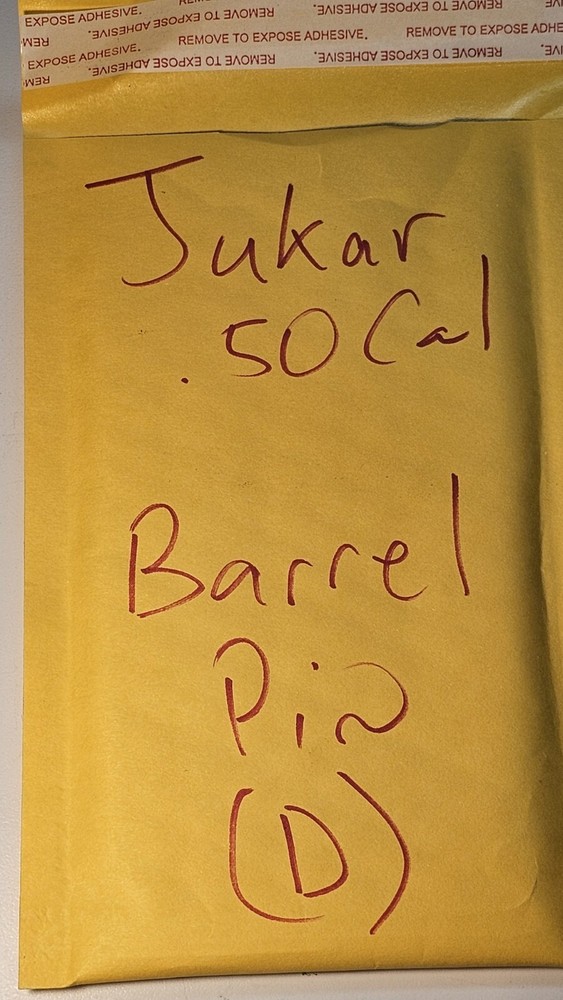 REMOVE TO EXPOSE ADHESIVE.
EXPOSE ADHESIVE. REMOVE TO EXPOSE ADHESIVE.
REMOVE TO EXPOSE ADHESIVE. REMOVE TO EXPOSE ADHE
EXPOSE ADHESIVE. REMOVE TO EXPOSE ADHESIVE.
Jukar
.50 Cal
Barrel
Pin
(D)